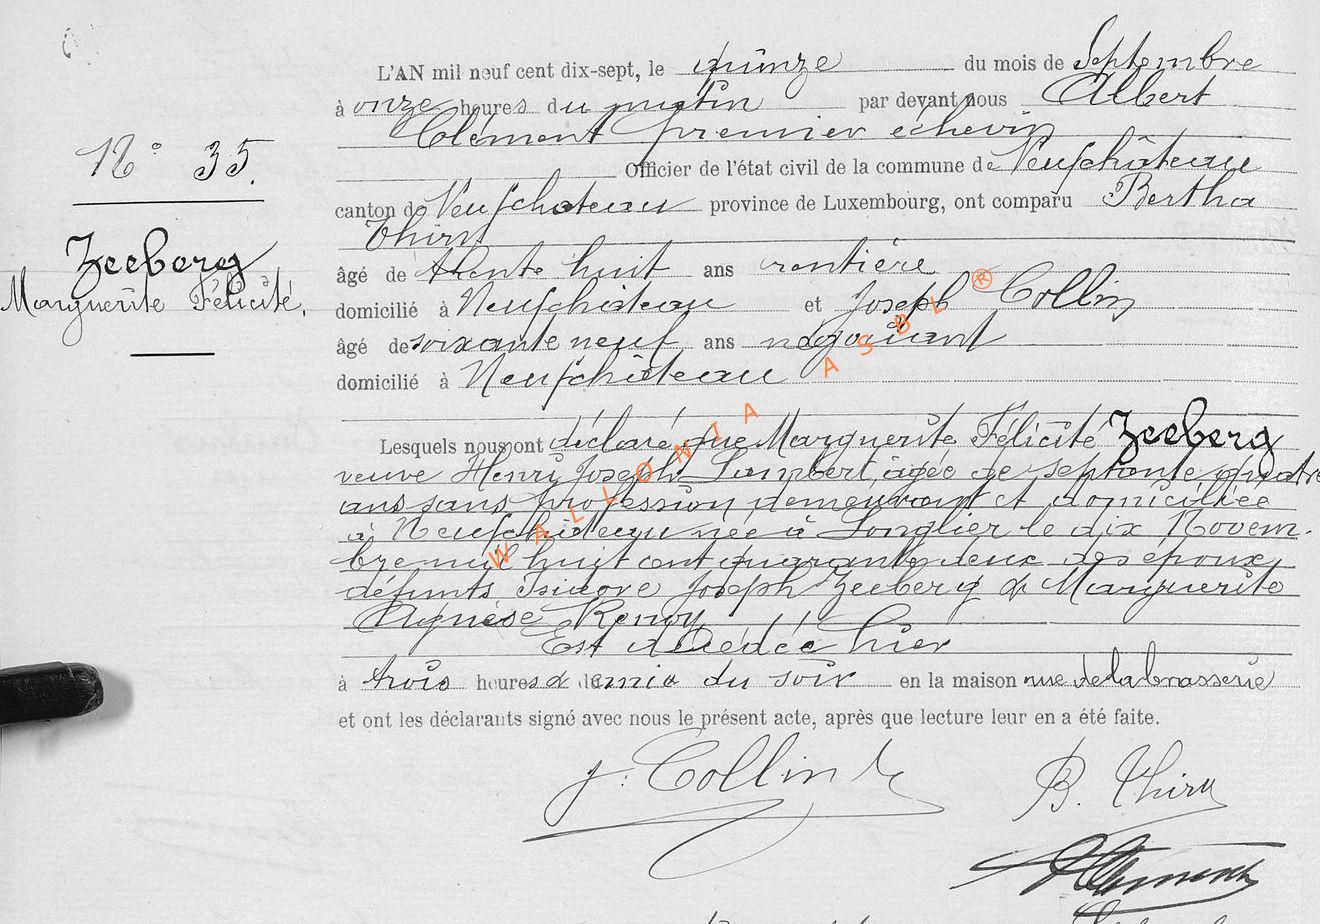 L'AN mil neuf cent dix-sept, le quinze du mois de Septembre
à onze heures du matin par devant nous Albert
Clément premier échevin
Officier de l'état civil de la commune de Neufchâteau
N° 35.
canton de Neufchateau province de Luxembourg, ont comparu Bertha
Thiry
Zeeberg
Marguerite Félicité.
âgé de trente huit ans rentière
domicilié à Neufchâteau et Joseph Collin
âgé de soixante neuf ans négociant
domicilié à Neufchâteau
Lesquels nous ont déclaré que Marguerite Félicité Zeeberg
veuve Henri Joseph Lambert, âgée de septante quatre
ans sans profession demeurant et domiciliée
à Neufchâteau née à Longlier le dix Novem-
bre mil huit cent quarante deux des époux
défunts Isidore Joseph Zeeberg & Marguerite
Agnése Remy
Est décédée hier
à trois heures & demie du soir en la maison rue de la brasserie
et ont les déclarants signé avec nous le présent acte, après que lecture leur en a été faite.
J. Collin
B. Thiry
AClément
WALLONIA ASBL ®